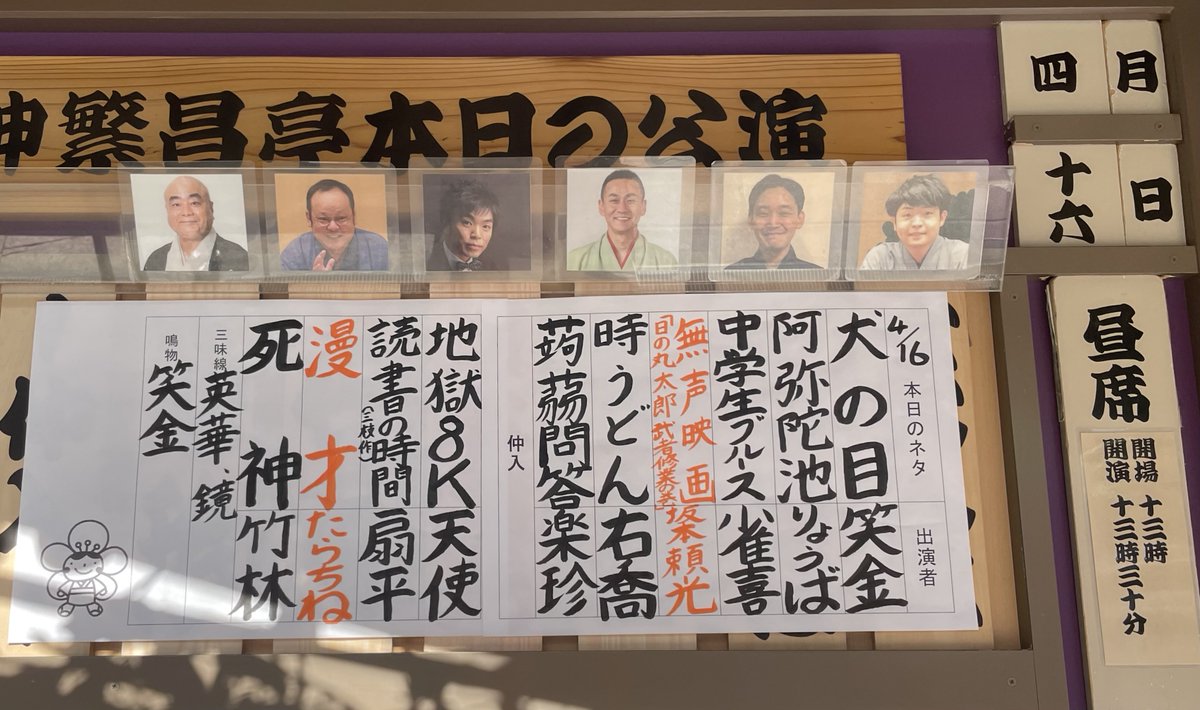 神繁昌亭本日の公演
四月
十六日
昼席
開場 十三時
開演 十三時三十分
4/16 本日のネタ 出演者
犬の目 笑金
阿弥陀池 りょうば
中学生ブルース 少雀喜
無声映画 坂本頼光
「日の丸太郎 武者修業の巻」
時うどん 右喬
蒟蒻問答 楽珍
仲入
地獄8K 天使
読書の時間 扇平
(三枝作)
漫才 たらちね
死神 竹林
三味線 英華、鏡
鳴物 笑金